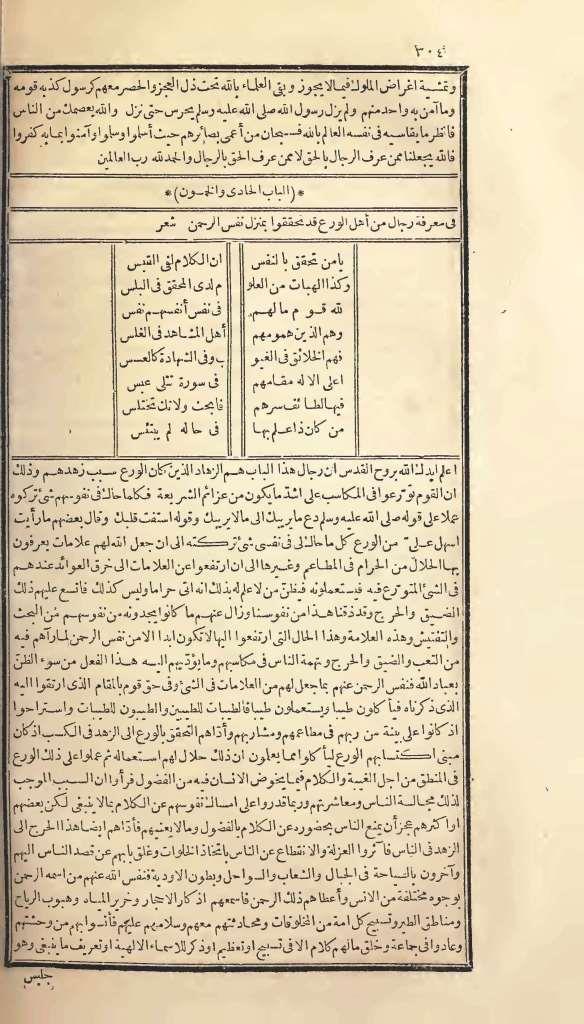 ٣٠٤
وتمشية اغراض الملوك فيما لا يجوز وبقى العلماء بالله تحت ذل العجز والحصر معهم كرسول كذبه قومه
وما آمن به واحد منهم ولم يزل رسول الله صلى الله عليه وسلم يحرس حتى نزل والله يعصمك من الناس
فانظر ما يقاسيه فى نفسه العالم بالله فسبحان من أعمى بصائرهم حيث أسلموا وسلموا وآمنوا بما به كفروا
فالله يجعلنا ممن عرف الرجال بالحق لا ممن عرف الحق بالرجال والحمد لله رب العالمين
*(الباب الحادى والخمسون)*
فى معرفة رجال من أهل الورع قد تحققوا بمنزل نفس الرحمن شعر
يا من تحقق بالنفس ان الكلام لفى القبس
وكذا الهبات من العلو م لدى المحقق فى البلس
لله قوم مالهم فى نفس أنفسهم نفس
وهم الذين همومهم أهل المشاهد فى الغلس
فهم الخلائق فى الغيو ب وفى الشهادة كالعسس
اعلى الاله مقامهم فى سورة تتلى عبس
فيها لطائف سرهم فابحث ولاتك تختلس
من كان ذا علم بها فى حاله لم يبتئس
اعلم ايدك الله بروح القدس ان رجال هذا الباب هم الزهاد الذين كان الورع سبب زهدهم وذلك
ان القوم تورعوا فى المكاسب على اشد ما يكون من عزائم الشريعة فكلما حاك فى نفوسهم شئ تركوه
عملا على قوله صلى الله عليه وسلم دع ما يريبك الى ما لا يريبك وقوله استفت قلبك وقال بعضهم ما رأيت
اسهل علىّ من الورع كل ما حاك لى فى نفسى شئ تركته الى ان جعل الله لهم علامات يعرفون
بها الحلال من الحرام فى المطاعم وغيرها الى ان ارتفعوا عن العلامات الى خرق العوائد عندهم
فى الشئ المتورع فيه فيستعملونه فيظن من لا علم له بذلك انه اتى حراما وليس كذلك فاتسع عليهم ذلك
الضيق والحرج وقد ذقنا هذا من نفوسنا وزال عنهم ما كانوا يجدونه من نفوسهم من البحث
والتفتيش وهذه العلامة وهذا الحال التى ارتفعوا اليها لا تكون ابدا الا من نفس الرحمن لما رآهم فيه
من التعب والضيق والحرج وتهمة الناس فى مكاسبهم وما يؤديهم اليه هذا الفعل من سوء الظن
بعباد الله فنفس الرحمن عنهم بما جعل لهم من العلامات فى الشئ وفى حق قوم بالمقام الذى ارتقوا اليه
الذى ذكرناه فيأكلون طيبا ويستعملون طيبا فالطيبات للطيبين والطيبون للطيبات واستراحوا
اذ كانوا على بينة من ربهم فى مطاعمهم ومشاربهم وأدّاهم التحقق بالورع الى الزهد فى الكسب اذ كان
مبنى اكتسابهم الورع ليأكلوا مما يعلمون ان ذلك حلال لهم استعماله ثم عملوا على ذلك الورع
فى المنطق من اجل الغيبة والكلام فيما يخوض الانسان فيه من الفضول فرأوا ان السبب الموجب
لذلك مجالسة الناس ومعاشرتهم وربما قدروا على امساك نفوسهم عن الكلام بما لا ينبغى لكن بعضهم
او اكثرهم عجز أن يمنع الناس بحضوره عن الكلام بالفضول وما لا يعنيهم فأدّاهم ايضا هذا الحرج الى
الزهد فى الناس فآثروا العزلة والانقطاع عن الناس باتخاذ الخلوات وغلق بابهم عن قصد الناس اليهم
وآخرون بالسياحة فى الجبال والشعاب والسواحل وبطون الاودية فنفس الله عنهم من اسمه الرحمن
بوجوه مختلفة من الانس وأعطاهم ذلك الرحمن فاسمعهم اذكار الاحجار وخرير المياه وهبوب الرياح
ومناطق الطير وتسبيح كل امة من المخلوقات ومحادثتهم معهم وسلامهم عليهم فأنسوا بهم من وحشتهم
وعادوا فى جماعة وخلق مالهم كلام الا فى تسبيح او تعظيم او ذكر للاسماء الالهية او تعريف ما ينبغى وهو
جليس